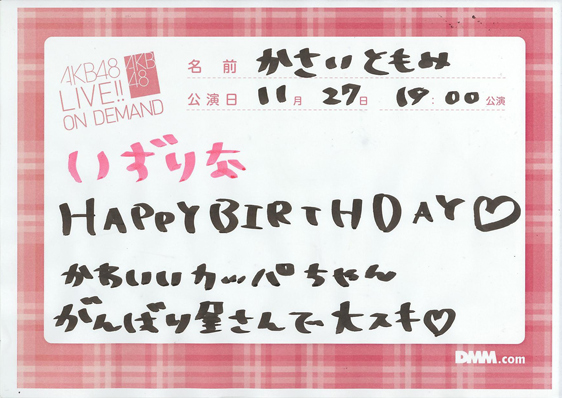 AKB48
LIVE!!
ON DEMAND
AKB
48
名前 かさいともみ
公演日 11月 27日 19:00公演
いずりな
HAPPY BIRTHDAY♡
かわいいカッパちゃん
がんばり屋さんで大スキ♡
DMM.com